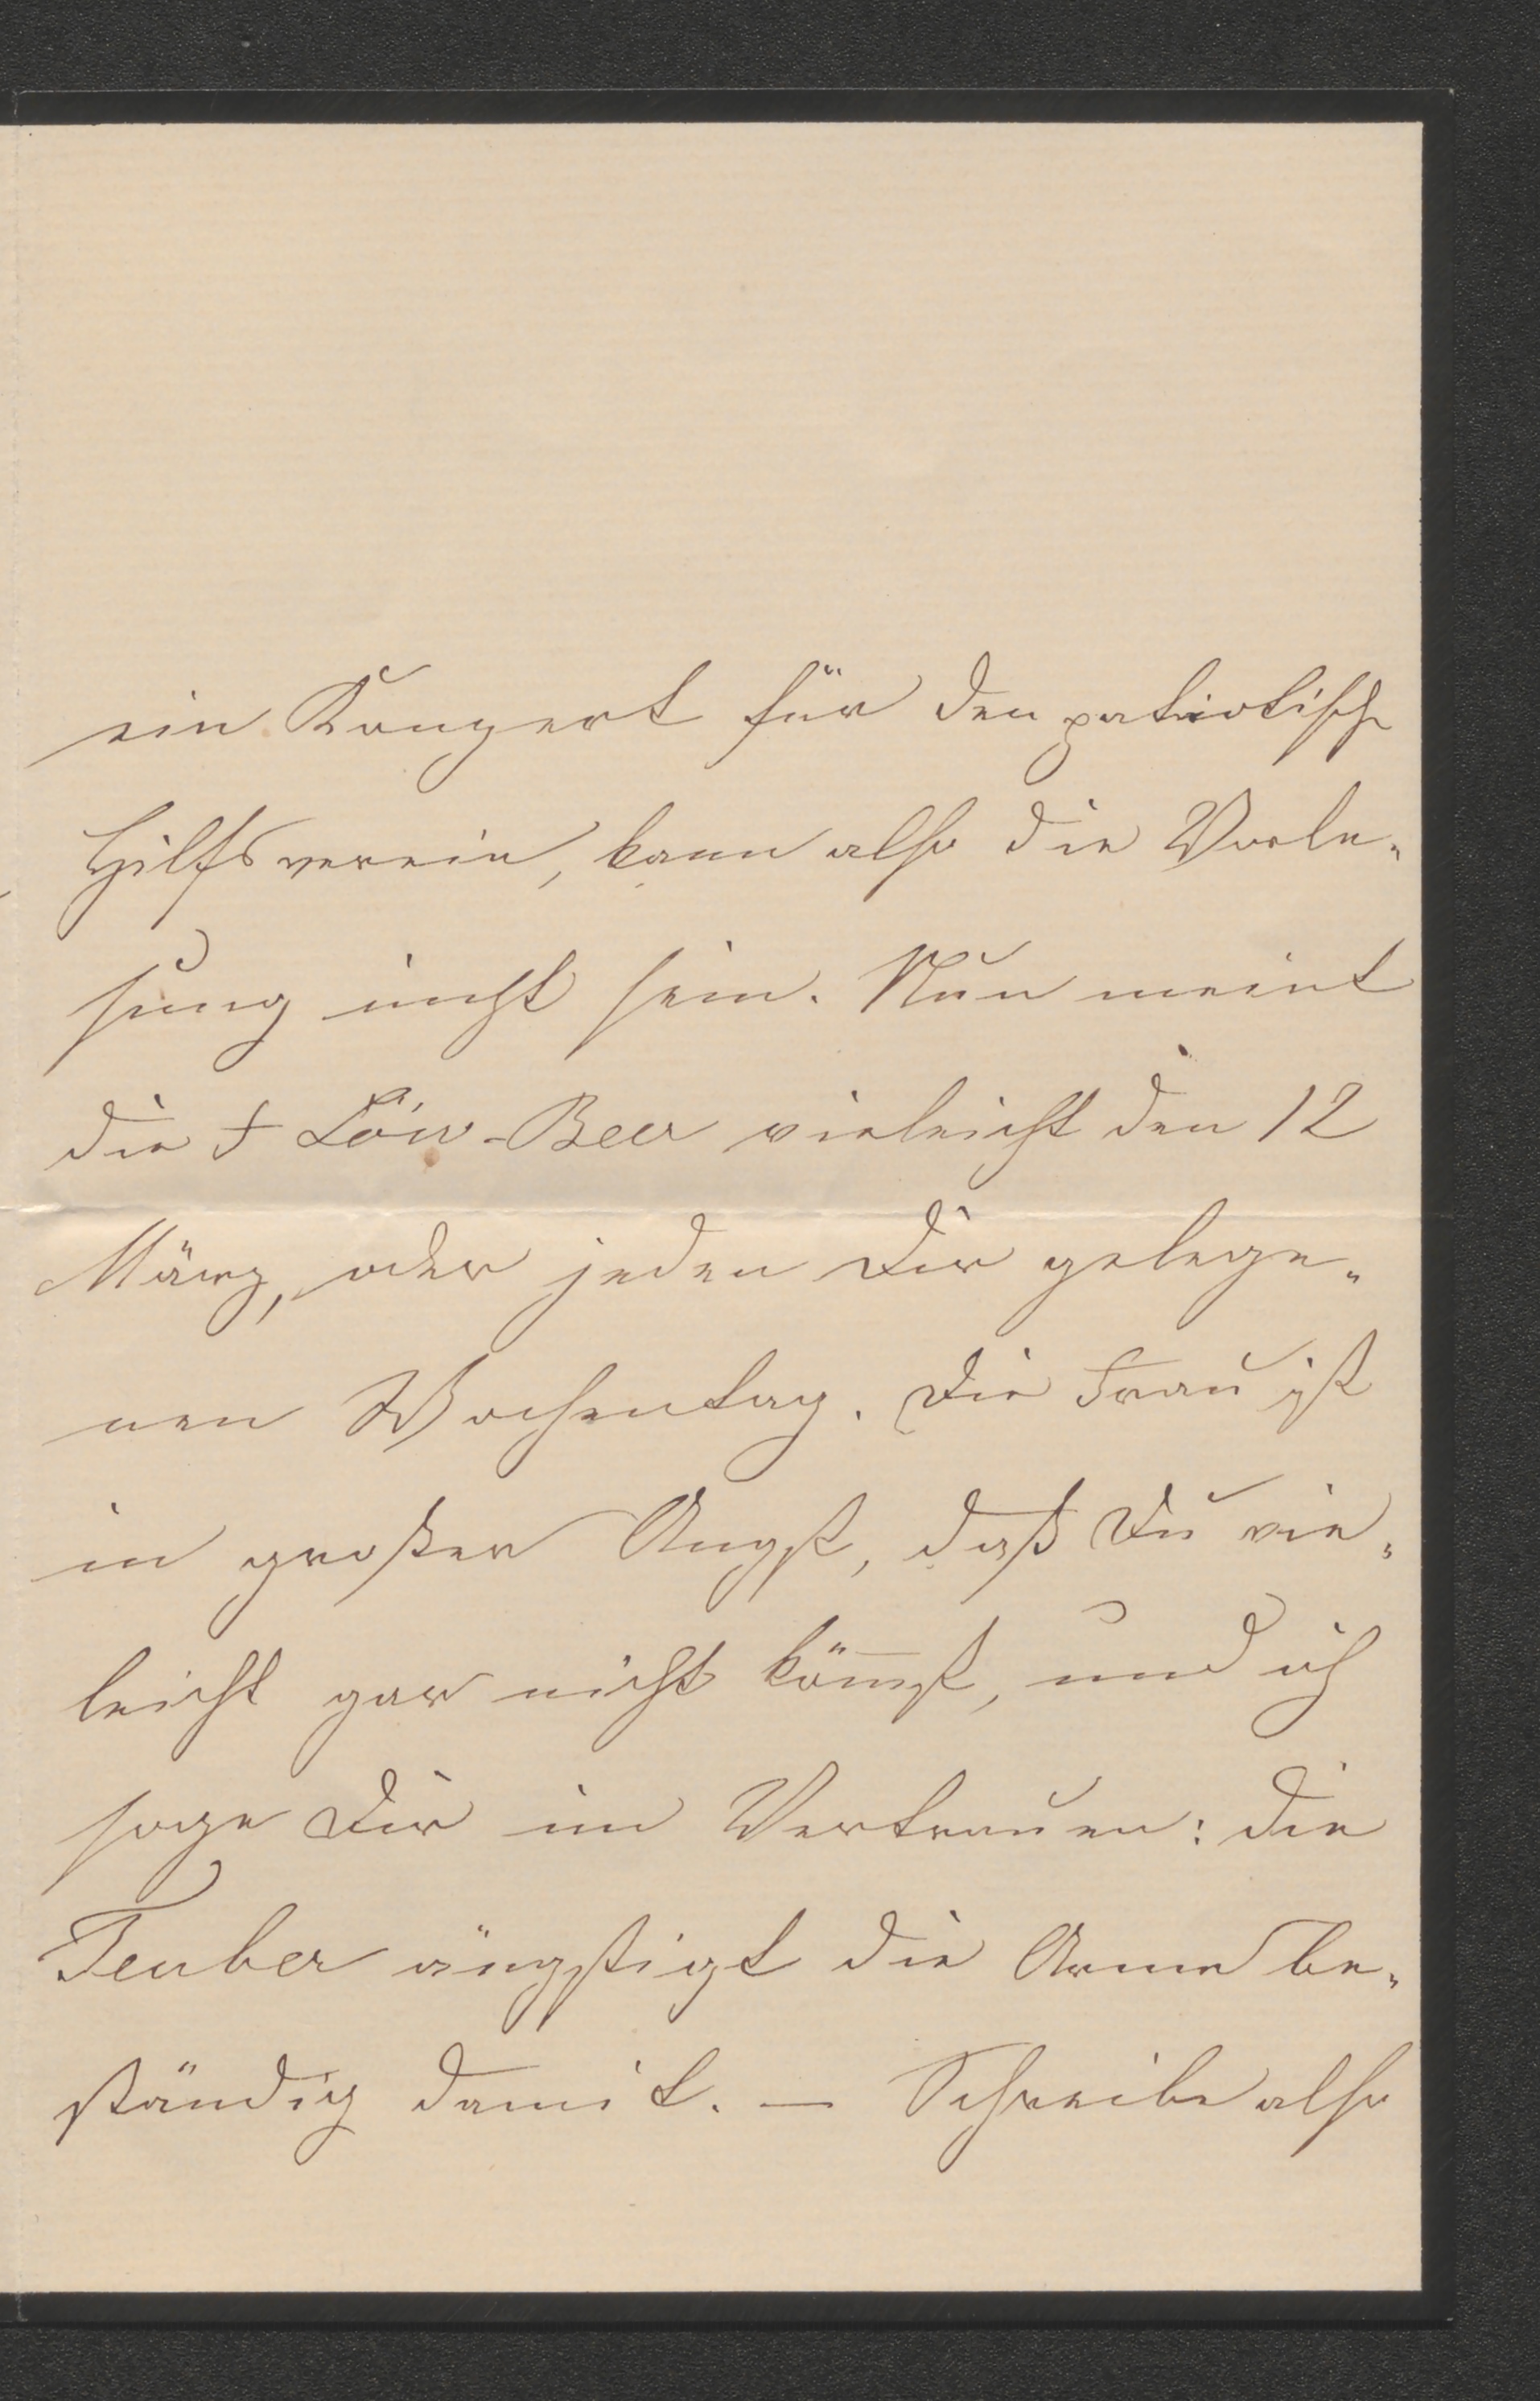 ein Konzert für den patriotisch
Hilfsverein, kann also die Vorle-
sung nicht sein. Nun meint
die F Löw-Beer vieleicht den 12
März, oder jeden Dir gelege-
nen Wochentag. Die Frau ist
in großer Angst, daß Du vie-
leicht gar nicht köm̅st, und ich
sage Dir im Vertrauen: die
Teuber ängstigt die Arme be-
ständig damit. — Schreibe also